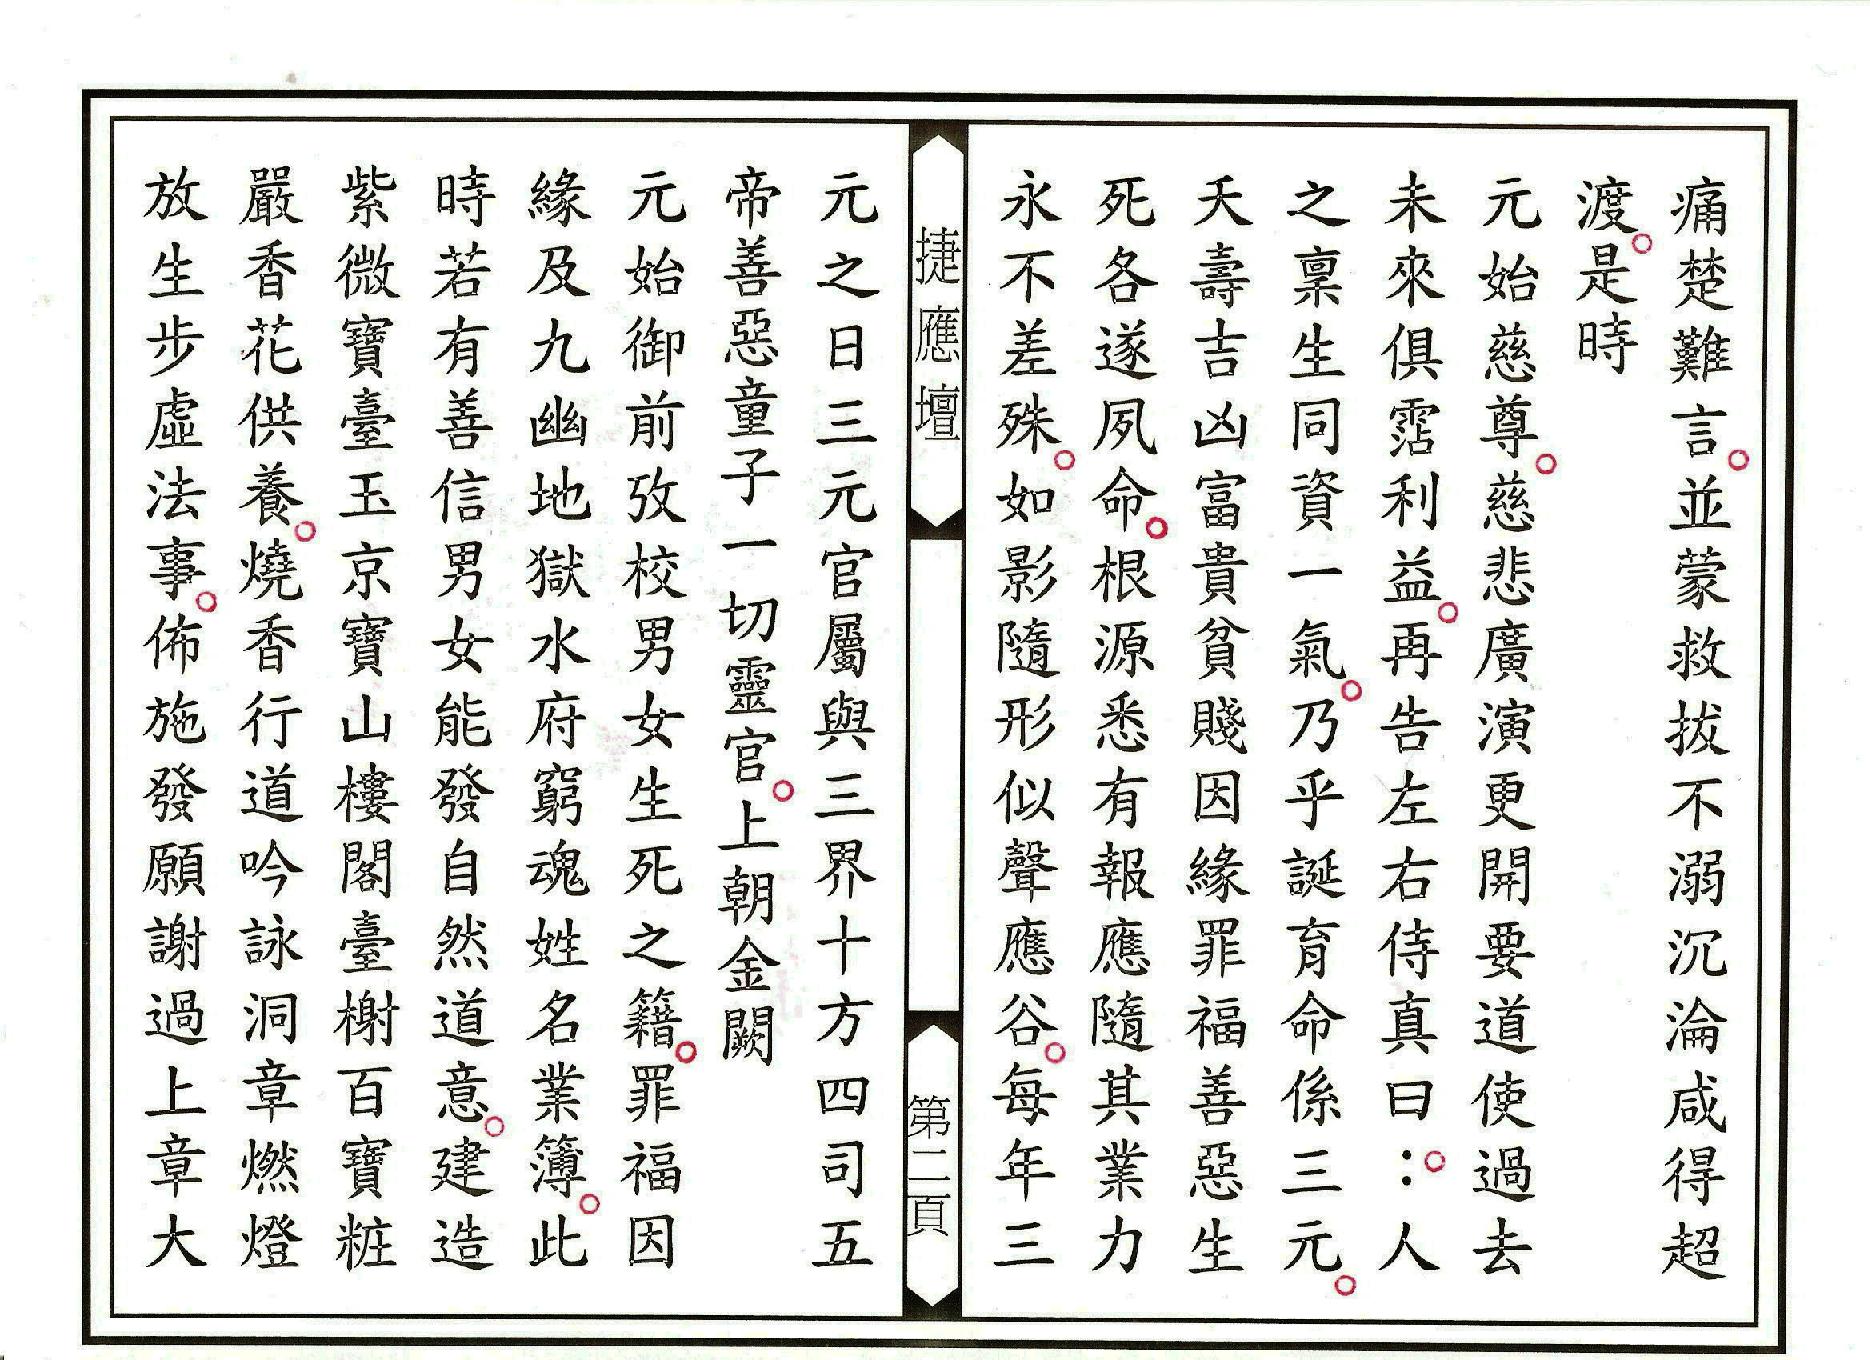 痛楚難言。並蒙救拔不溺沉淪咸得超
渡。是時
元始慈尊。慈悲廣演更開要道使過去
未來俱霑利益。再告左右侍真曰：。人
之稟生同資一氣。乃乎誕育命係三元。
夭壽吉凶富貴貧賤因緣罪福善惡生
死各遂夙命。根源悉有報應隨其業力
永不差殊。如影隨形似聲應谷。每年三
捷應壇
第二頁
元之日三元官屬與三界十方四司五
帝善惡童子一切靈官。上朝金闕
元始御前攷校男女生死之籍。罪福因
緣及九幽地獄水府窮魂姓名業簿。此
時若有善信男女能發自然道意。建造
紫微寶臺玉京寶山樓閣臺榭百寶粧
嚴香花供養。燒香行道吟詠洞章燃燈
放生步虛法事。佈施發願謝過上章大